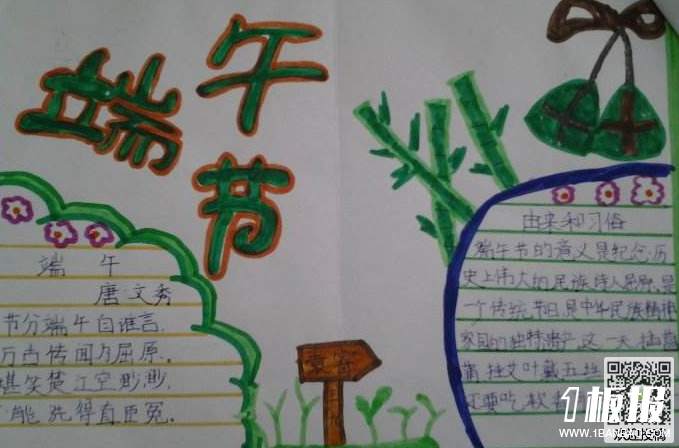 端午节
端 午
唐 文秀
节分端午自谁言,
万古传闻为屈原。
堪笑楚江空渺渺,
能洗得直臣冤。
由来和习俗
端午节的意义是纪念历
史上伟大的民族诗人屈原,是
一个传统节日,是中华民族精神
家园的独特遗产,这一天,插菖
蒲,挂艾叶戴五丝
还要吃
1板报
WWW.1BANBAO.COM